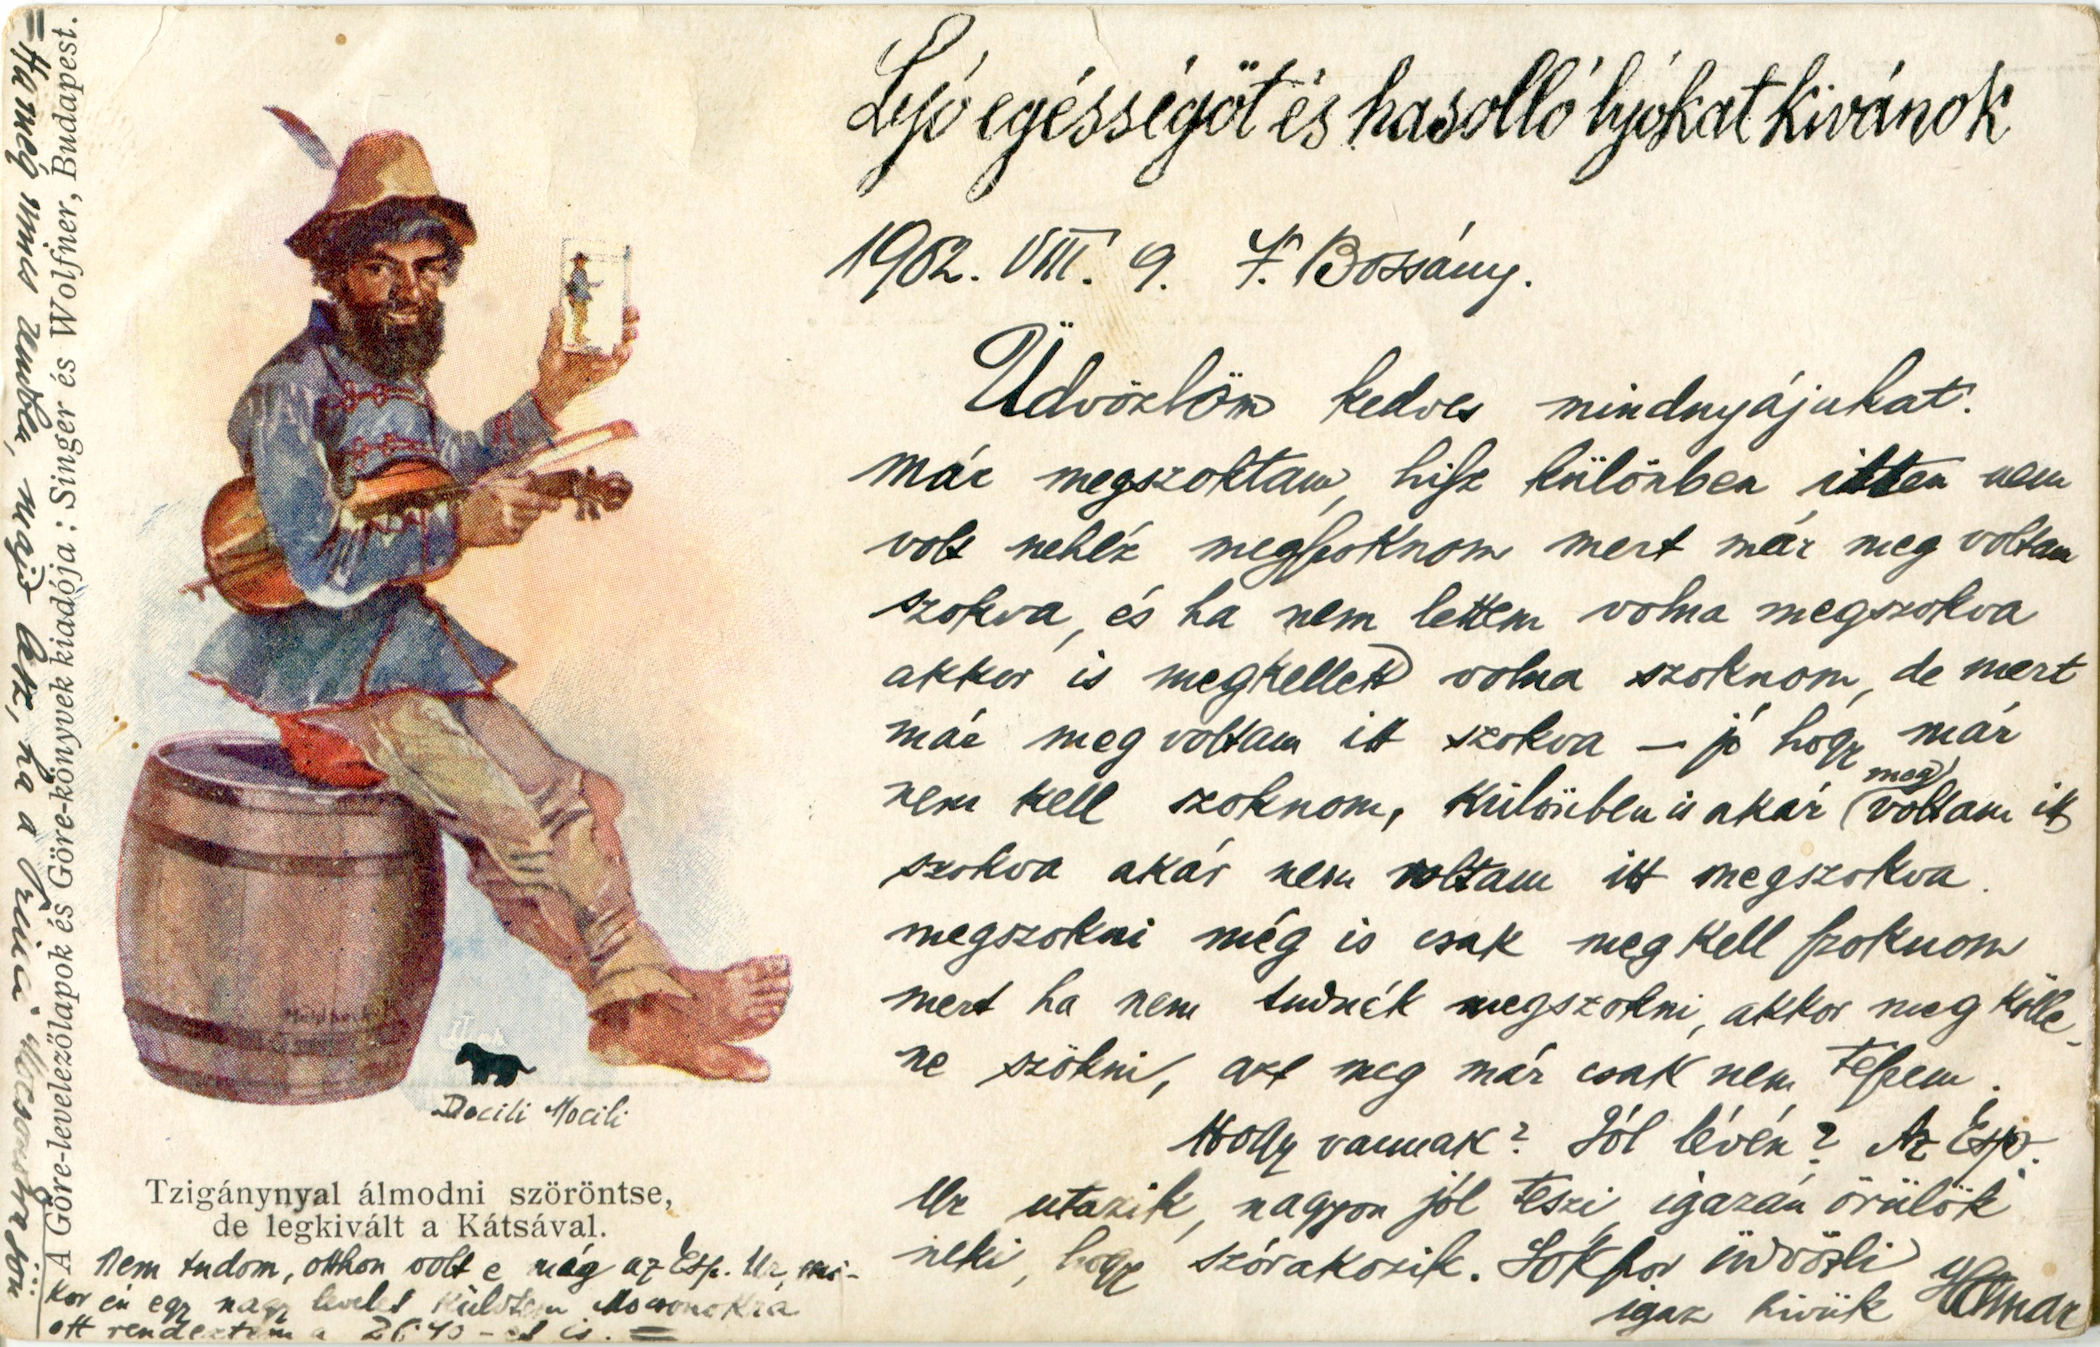 Lyó egésségöt és hasolló lyókat kivánok
1902. VIII. 9. F. Bossány.
Üdvözlöm kedves mindnyájukat.
már megszoktam, hisz különben itten nem
volt nehéz megszoknom mert már meg voltam
szokva, és ha nem lettem volna megszokva
akkor is megkellett volna szoknom, de mert
már meg voltam itt szokva — jó hogy már
nem kell szoknom, különben is akár meg voltam itt
szokva akár nem voltam itt megszokva.
megszokni még is csak meg kell szoknom
mert ha nem tudnék megszokni, akkor meg kölle-
ne szökni, azt meg már csak nem teszem.
Hogy vannak? Jól lévén? Az Esp.
Ur utazik, nagyon jól teszi, igazán örülök
neki, hogy szórakozik. Sokszor üdvözli
igaz hivük
Docili Mocili
Tzigánynyal álmodni szöröntse,
de legkivált a Kátsával.
Nem tudom, otthon volt e még az Esp. Ur, mi-
kor én egy nagy levelet küldtem Mocsonokra
ott rendeztem a is. =
A Göre-levelezőlapok és Göre-könyvek kiadója: Singer és Wolfner, Budapest.
= Ha még nincs, majd lesz, ha a Mocsonokra jön